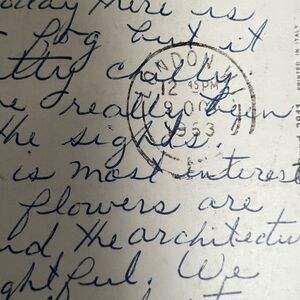 today Here is
fog but it
chilly.
e really been
the sights.
is most interest
flowers are
nd the architectu
ghtful. We
NDON
12 45 PM
9 OC
1953
PRINTED IN ITALY